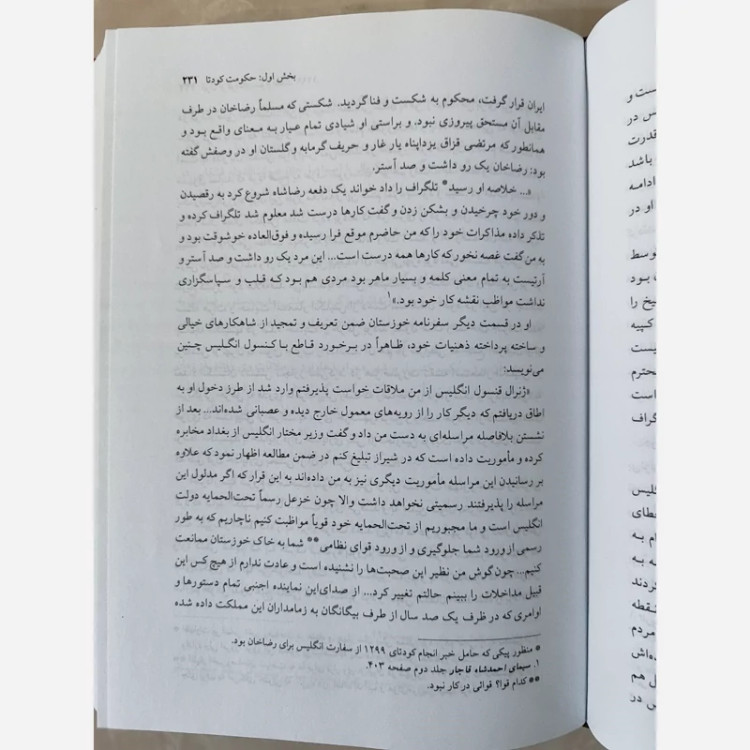 بخش اول: حکومت کودتا ۲۳۱
ایران قرار گرفت، محکوم به شکست و فنا گردید. شکستی که مسلماً رضاخان در طرف
مقابل آن مستحق پیروزی نبود. و براستی او شیادی تمام عیار به معنای واقع بود و
همانطور که مرتضی قزاق یزداپناه یار غار و حریف گرمابه و گلستان او در وصفش گفته
بود: رضاخان یک رو داشت و صد آستر.
«... خلاصه او رسید* تلگراف را داد خواند یک دفعه رضاشاه شروع کرد به رقصیدن
و دور خود چرخیدن و بشکن زدن و گفت کارها درست شد معلوم شد تلگراف کرده و
تذکر داده مذاکرات خود را که من حاضرم موقع فرا رسیده و فوق‌العاده خوشوقت بود و
به من گفت غصه نخور که کارها همه درست است... این مرد یک رو داشت و صد آستر و
آرتیست به تمام معنی کلمه و بسیار ماهر بود مردی هم بود که قلب و سپاسگزاری
نداشت مواظب نقشه کار خود بود.»۱
او در قسمت دیگر سفرنامه خوزستان ضمن تعریف و تمجید از شاهکارهای خیالی
و ساخته پرداخته ذهنیات خود، ظاهراً در برخورد قاطع با کنسول انگلیس چنین
می‌نویسد:
«ژنرال قنسول انگلیس از من ملاقات خواست پذیرفتم وارد شد از طرز دخول او به
اطاق دریافتم که دیگر کار را از رویه‌های معمول خارج دیده و عصبانی شده‌اند... بعد از
نشستن بلافاصله مراسله‌ای به دست من داد و گفت وزیر مختار انگلیس از بغداد مخابره
کرده و مأموریت داده است که در شیراز تبلیغ کنم در ضمن مطالعه اظهار نمود که علاوه
بر رسانیدن این مراسله مأموریت دیگری نیز به من داده‌اند به این قرار که اگر مدلول این
مراسله را پذیرفتند رسمیتی نخواهد داشت والا چون خزعل رسماً تحت‌الحمایه دولت
انگلیس است و ما مجبوریم از تحت‌الحمایه خود قویاً مواظبت کنیم ناچاریم که به طور
رسمی از ورود شما جلوگیری و از ورود قوای نظامی** شما به خاک خوزستان ممانعت
کنیم... چون گوش من نظیر این صحبت‌ها را نشنیده است و عادت ندارم از هیچ کس این
قبیل مداخلات را ببینم حالتم تغییر کرد... از صدای این نماینده اجنبی تمام دستورها و
اوامری که در ظرف یک صد سال از طرف بیگانگان به زمامداران این مملکت داده شده
* منظور پیکی که حامل خبر انجام کودتای ۱۲۹۹ از سفارت انگلیس برای رضاخان بود.
۱. سیمای احمدشاه قاجار جلد دوم صفحه ۴۰۳.
** کدام قوا؟ قوائی در کار نبود.